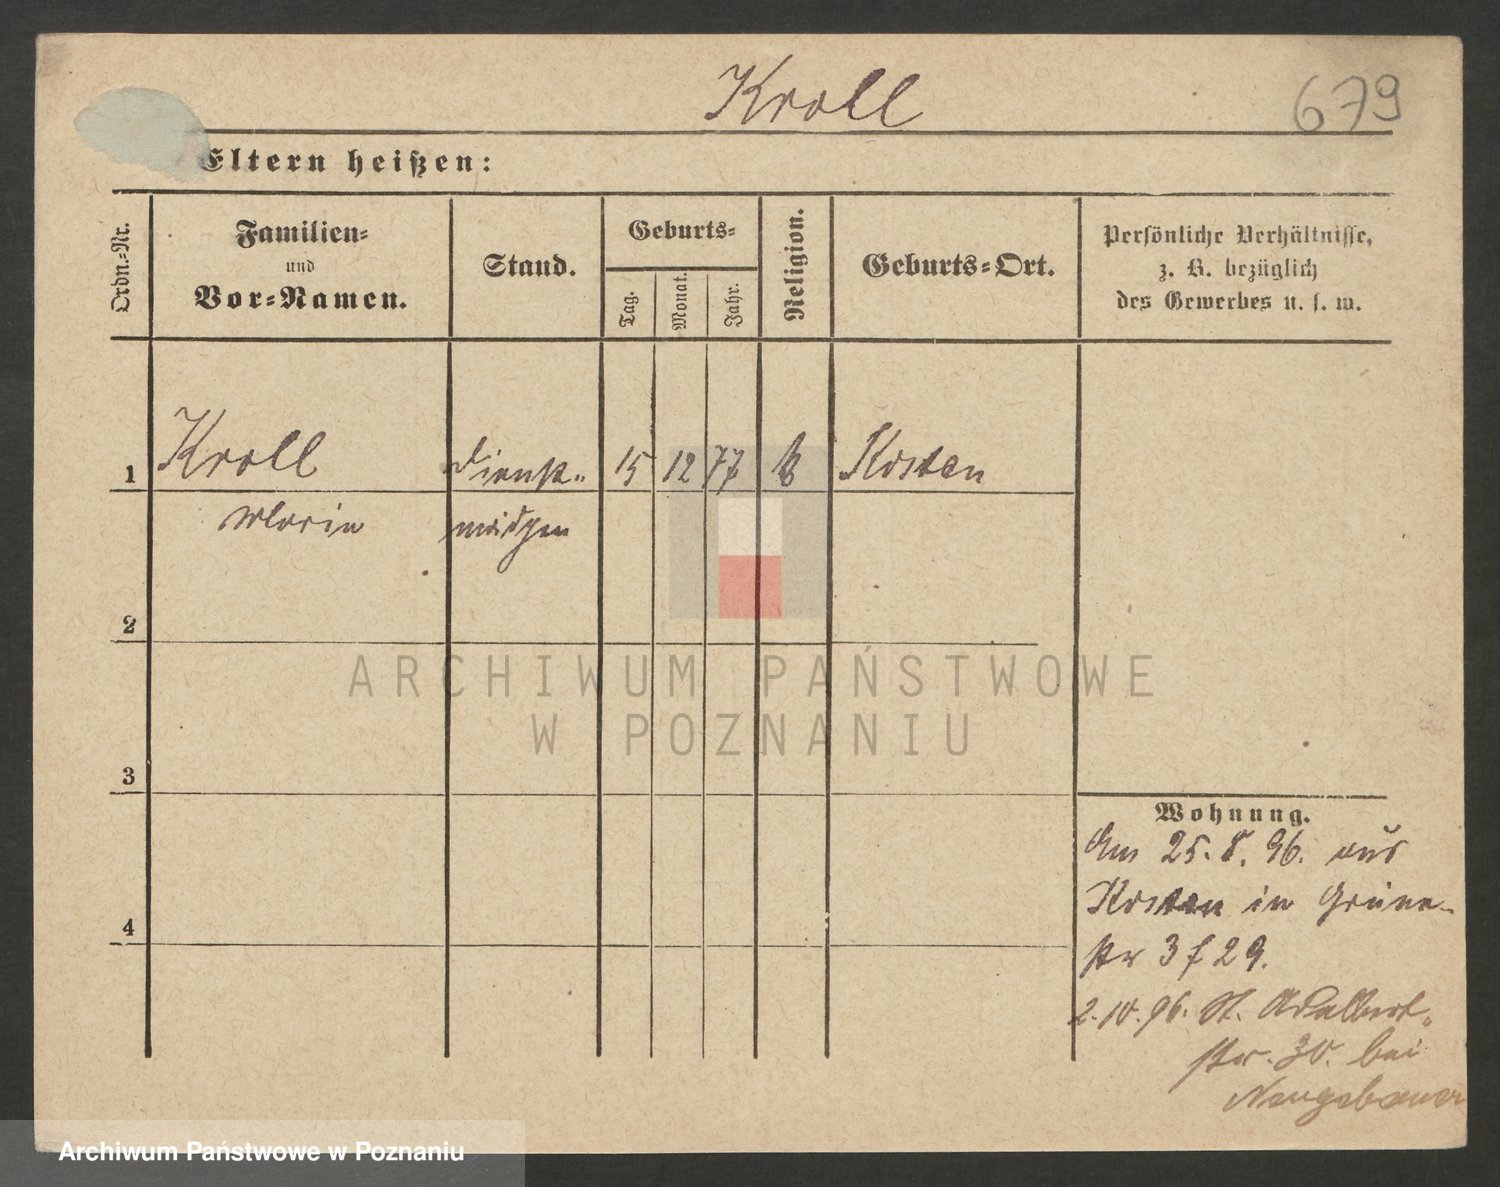 Kroll
679
Eltern heißen:
Ordn.-Nr.
Familien-
und
Vor-Namen.
Stand.
Geburts-
Tag.
Monat.
Jahr.
Religion.
Geburts-Ort.
Persönliche Verhältnisse,
z. B. bezüglich
des Gewerbes u. s. w.
1
Kroll
Dienst-
15
12
77
k
Kosten
Maria
mädchen
2
3
4
Wohnung.
Am 25. 8. 96. aus
Kosten in Grüne-
str 3 f 29.
2.10.96. St. Adalbert-
str. 30. bei
Neugebauer
ARCHIWUM PAŃSTWOWE
W POZNANIU
Archiwum Państwowe w Poznaniu